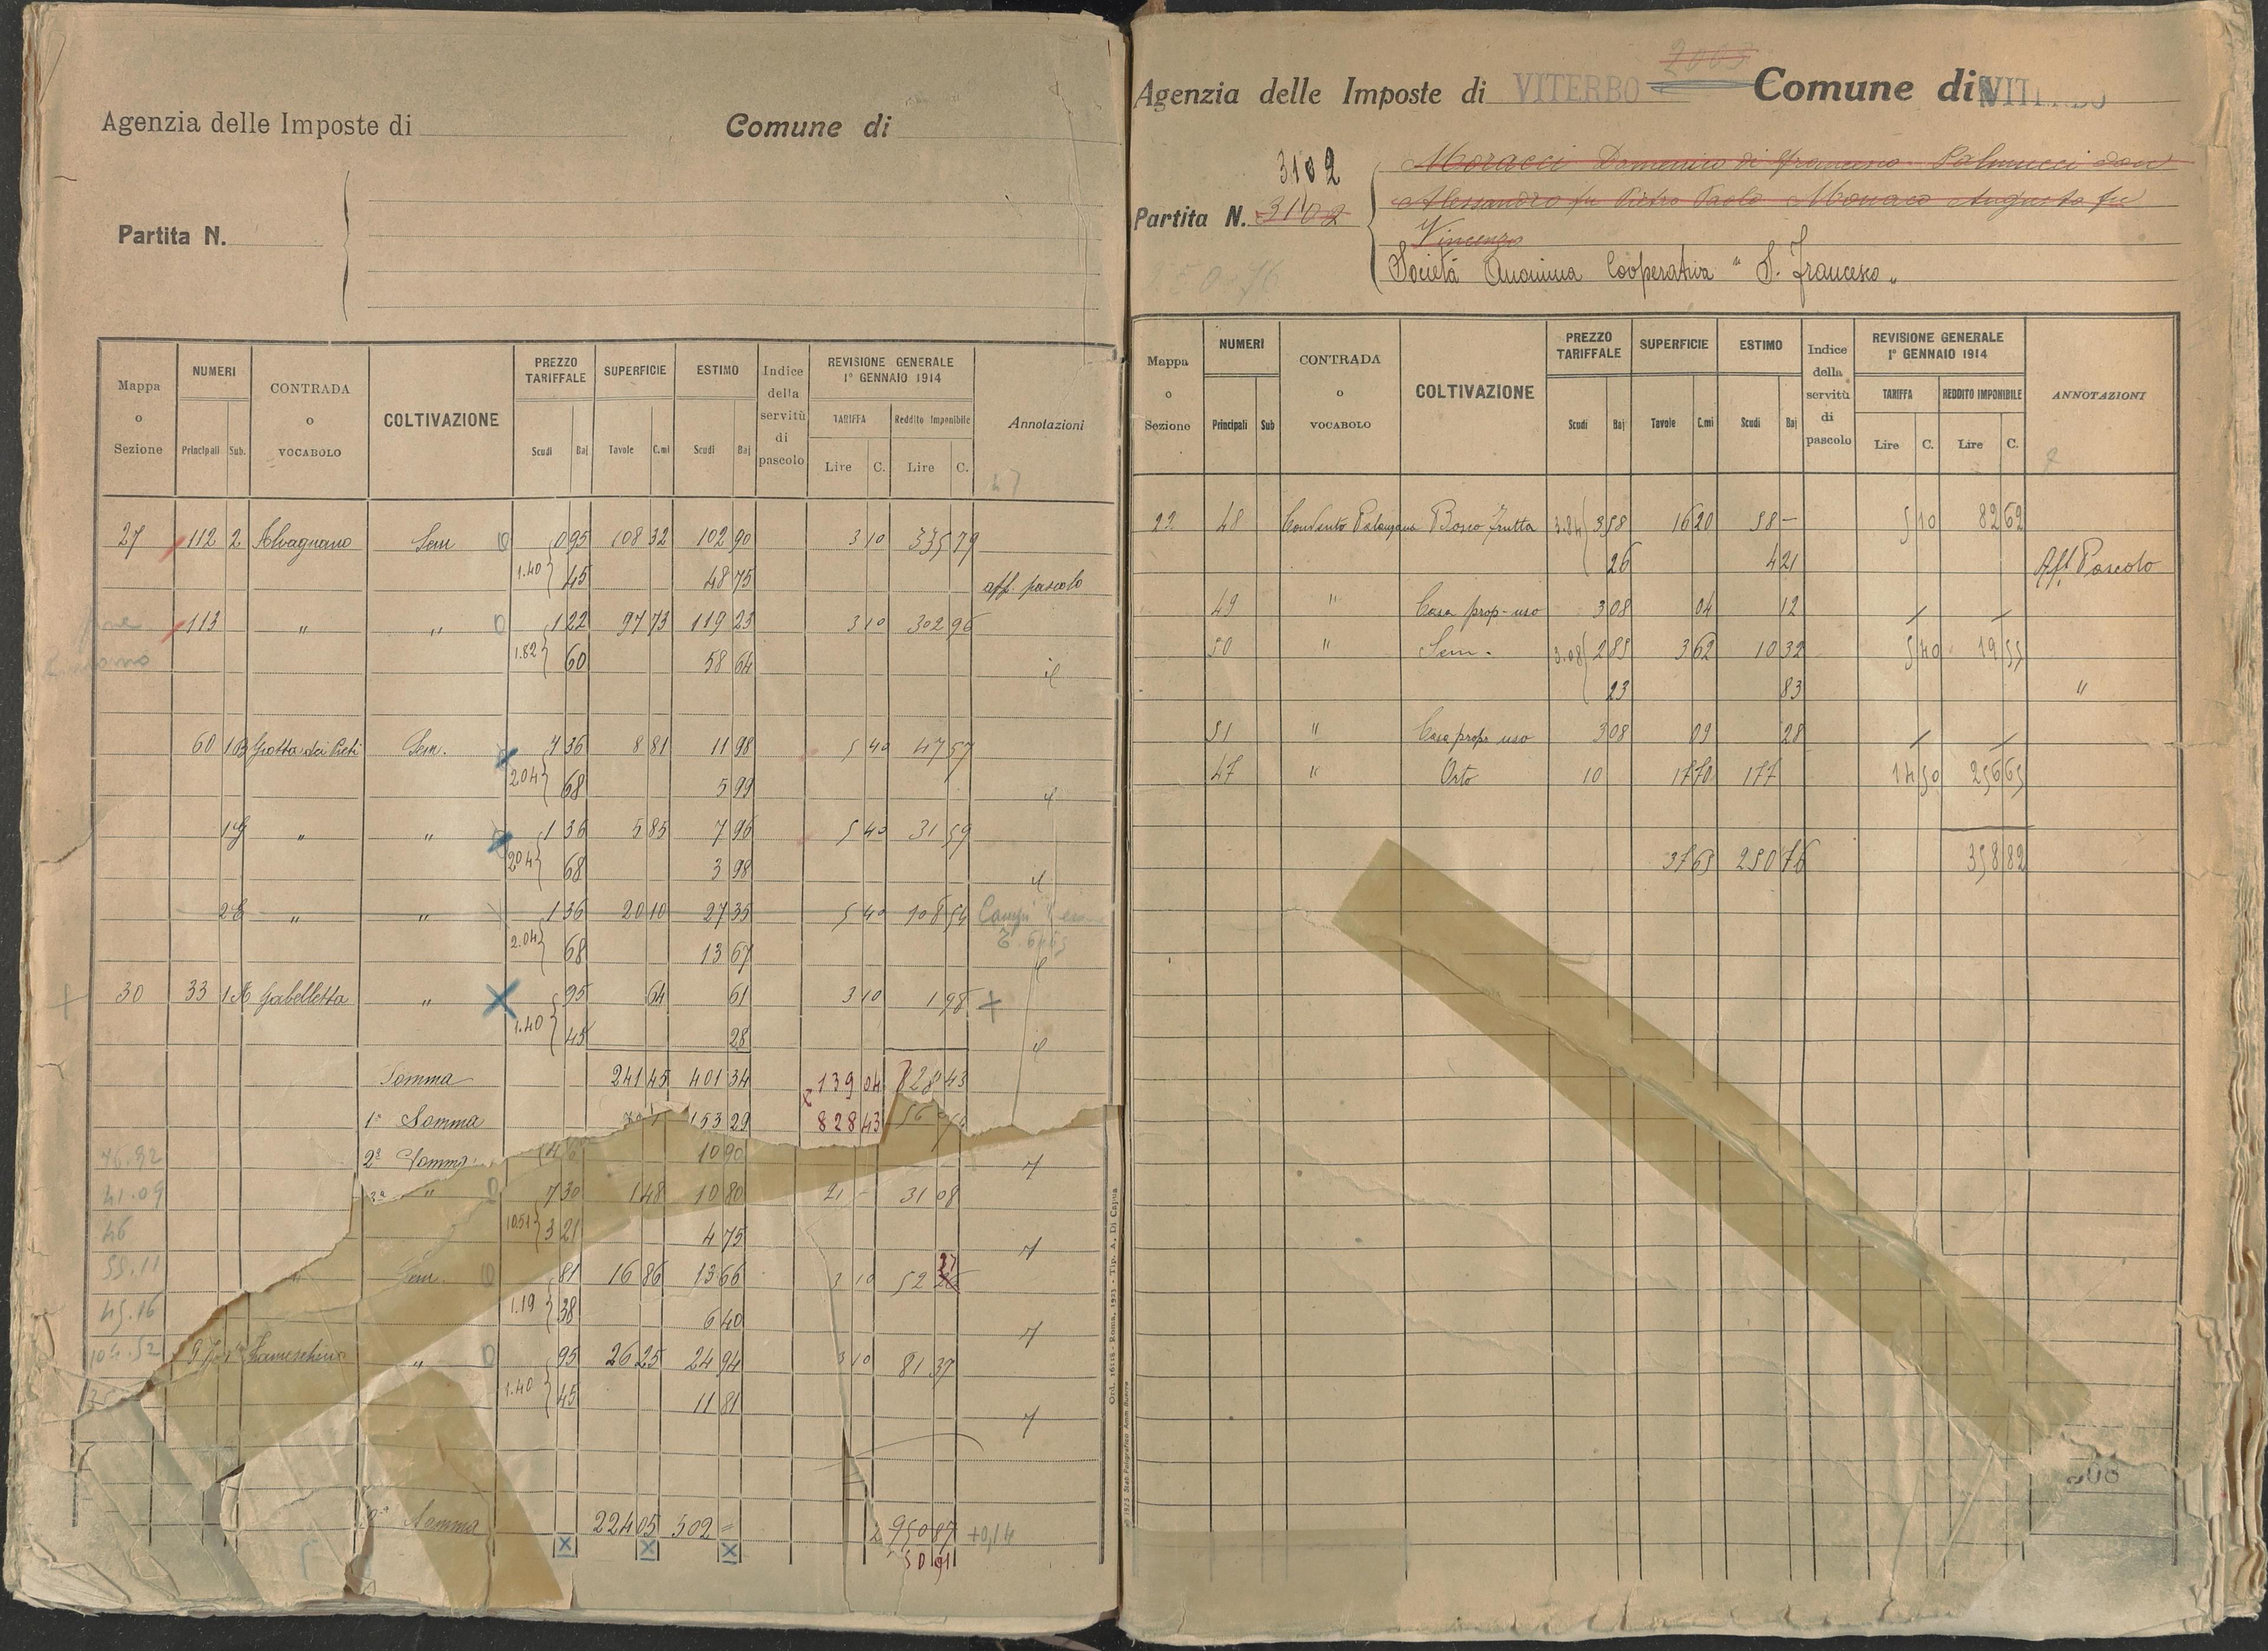 Agenzia delle Imposte di
Comune di
Partita N.
Mappa o Sezione
NUMERI
Principali
Sub.
CONTRADA o VOCABOLO
COLTIVAZIONE
PREZZO TARIFFALE
Scudi
Baj
SUPERFICIE
Tavole
C.mi
ESTIMO
Scudi
Baj
Indice della servitù di pascolo
REVISIONE GENERALE
1° GENNAIO 1914
TARIFFA
Reddito Imponibile
Lire
C.
Lire
C.
Annotazioni
27 112 2 Alvagnano Sem 0 95 108 32 102 90 3 10 335 79
1.40 45 48 75 aff. pascolo
113 " " 1 22 97 73 119 23 3 10 302 96
1.82 60 58 64
60 1 Sem. 1 36 8 81 11 98 5 40 47 57
2 04 68 5 99
" " 1 36 5 85 7 96 5 40 31 59
2 04 68 3 98
" " 1 36 20 10 27 35 5 40 108 54
2.04 68 13 67
30 33 1A Gabelletta " 95 64 61 3 10 1 98
1.40 45 28
Somma 241 45 401 34 139 04 828 43
1ª Somma 153 29 828 43
2ª Somma 10 90
46.92
3ª " 7 30 1 48 10 80 21 - 31 08
41.09
10.51 3 21 4 75
46
Sem. 81 16 86 13 66 3 10 52 26 27
55.11
1.19 38 6 40
45.16
" 95 26 25 24 94 3 10 81 37
1.40 45 11 81
Somma 224 05 502 = 950 87 +0,14
Ord. 16118 - Roma, 1923 - Tip. A. Di Cajma
Agenzia delle Imposte di VITERBO
2003
Comune di VITERBO
3102
Partita N. 3102
Moracci Domenico di Francesco Palmucci Don
Alessandro fu Pietro Paolo Monaco Augusto fu
Vincenzo
Società Anonima Cooperativa " S. Francesco "
250.76
Mappa o Sezione
NUMERI
Principali
Sub
CONTRADA o VOCABOLO
COLTIVAZIONE
PREZZO TARIFFALE
Scudi
Baj
SUPERFICIE
Tavole
C.mi
ESTIMO
Scudi
Baj
Indice della servitù di pascolo
REVISIONE GENERALE
1° GENNAIO 1914
TARIFFA
REDDITO IMPONIBILE
Lire
C.
Lire
C.
ANNOTAZIONI
22 48 Convento Palanzana Bosco frutta 3.84 3 58 16 20 58 - 5 10 82 62
26 4 21 Aff. Pascolo
49 " Casa prop-uso 3 08 04 12
50 " Sem. 3.08 2 85 3 62 10 32 5 40 19 55
23 83 "
51 " Casa prop. uso 3 08 09 28
47 " Orto 10 17 70 177 14 50 256 65
37 65 250 76 358 82